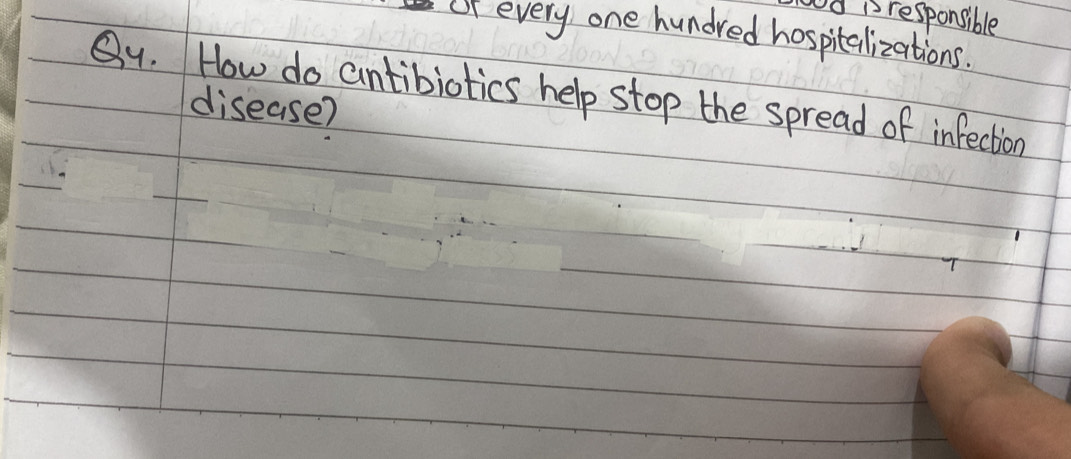 of every one hundred hospitalizations.
is responsible
Q4. How do antibiotics help stop the spread of infection
disease?